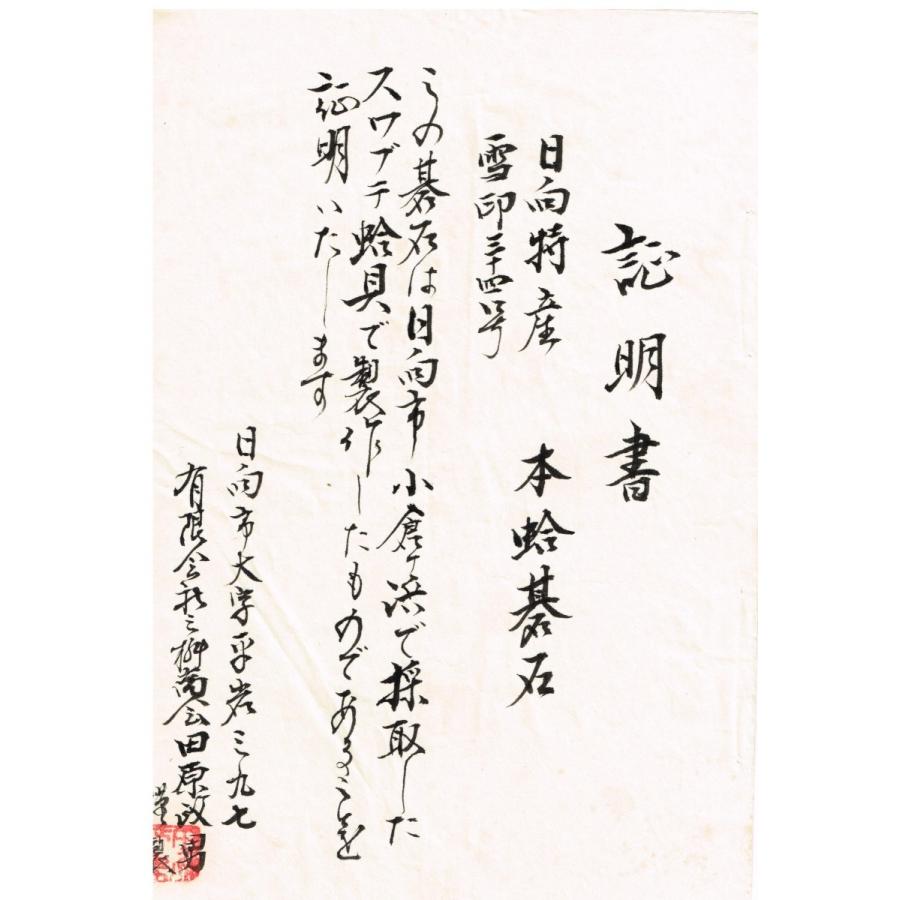 証明書
日向特産 本蛤碁石
雪印三十四号
この碁石は日向市小倉ヶ浜で採取した
スワブテ蛤貝で製作したものであることを
証明いたします
日向市大字平岩三九七
有限会社三柳商会田原政男
謹製